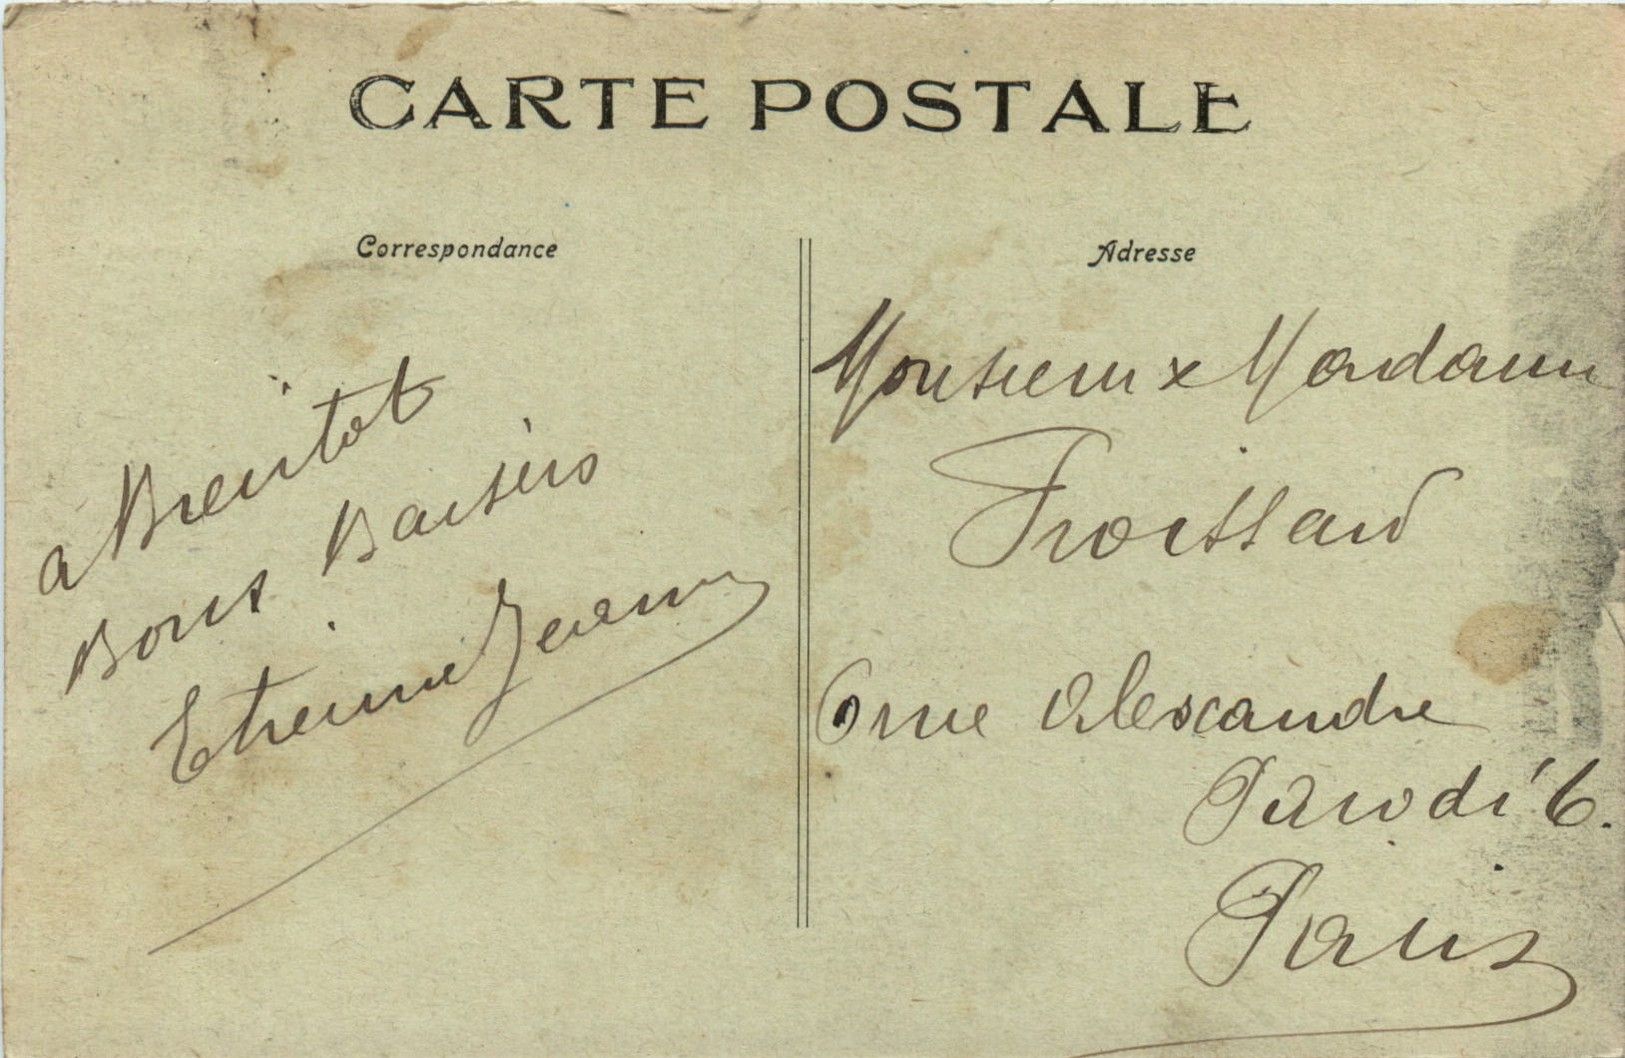 CARTE POSTALE
Correspondance
a Bientot
Bons Baisers
Etienne
Adresse
Monsieur x Madame
Froissard
6 rue Alexandre
Parodi 6.
Paris